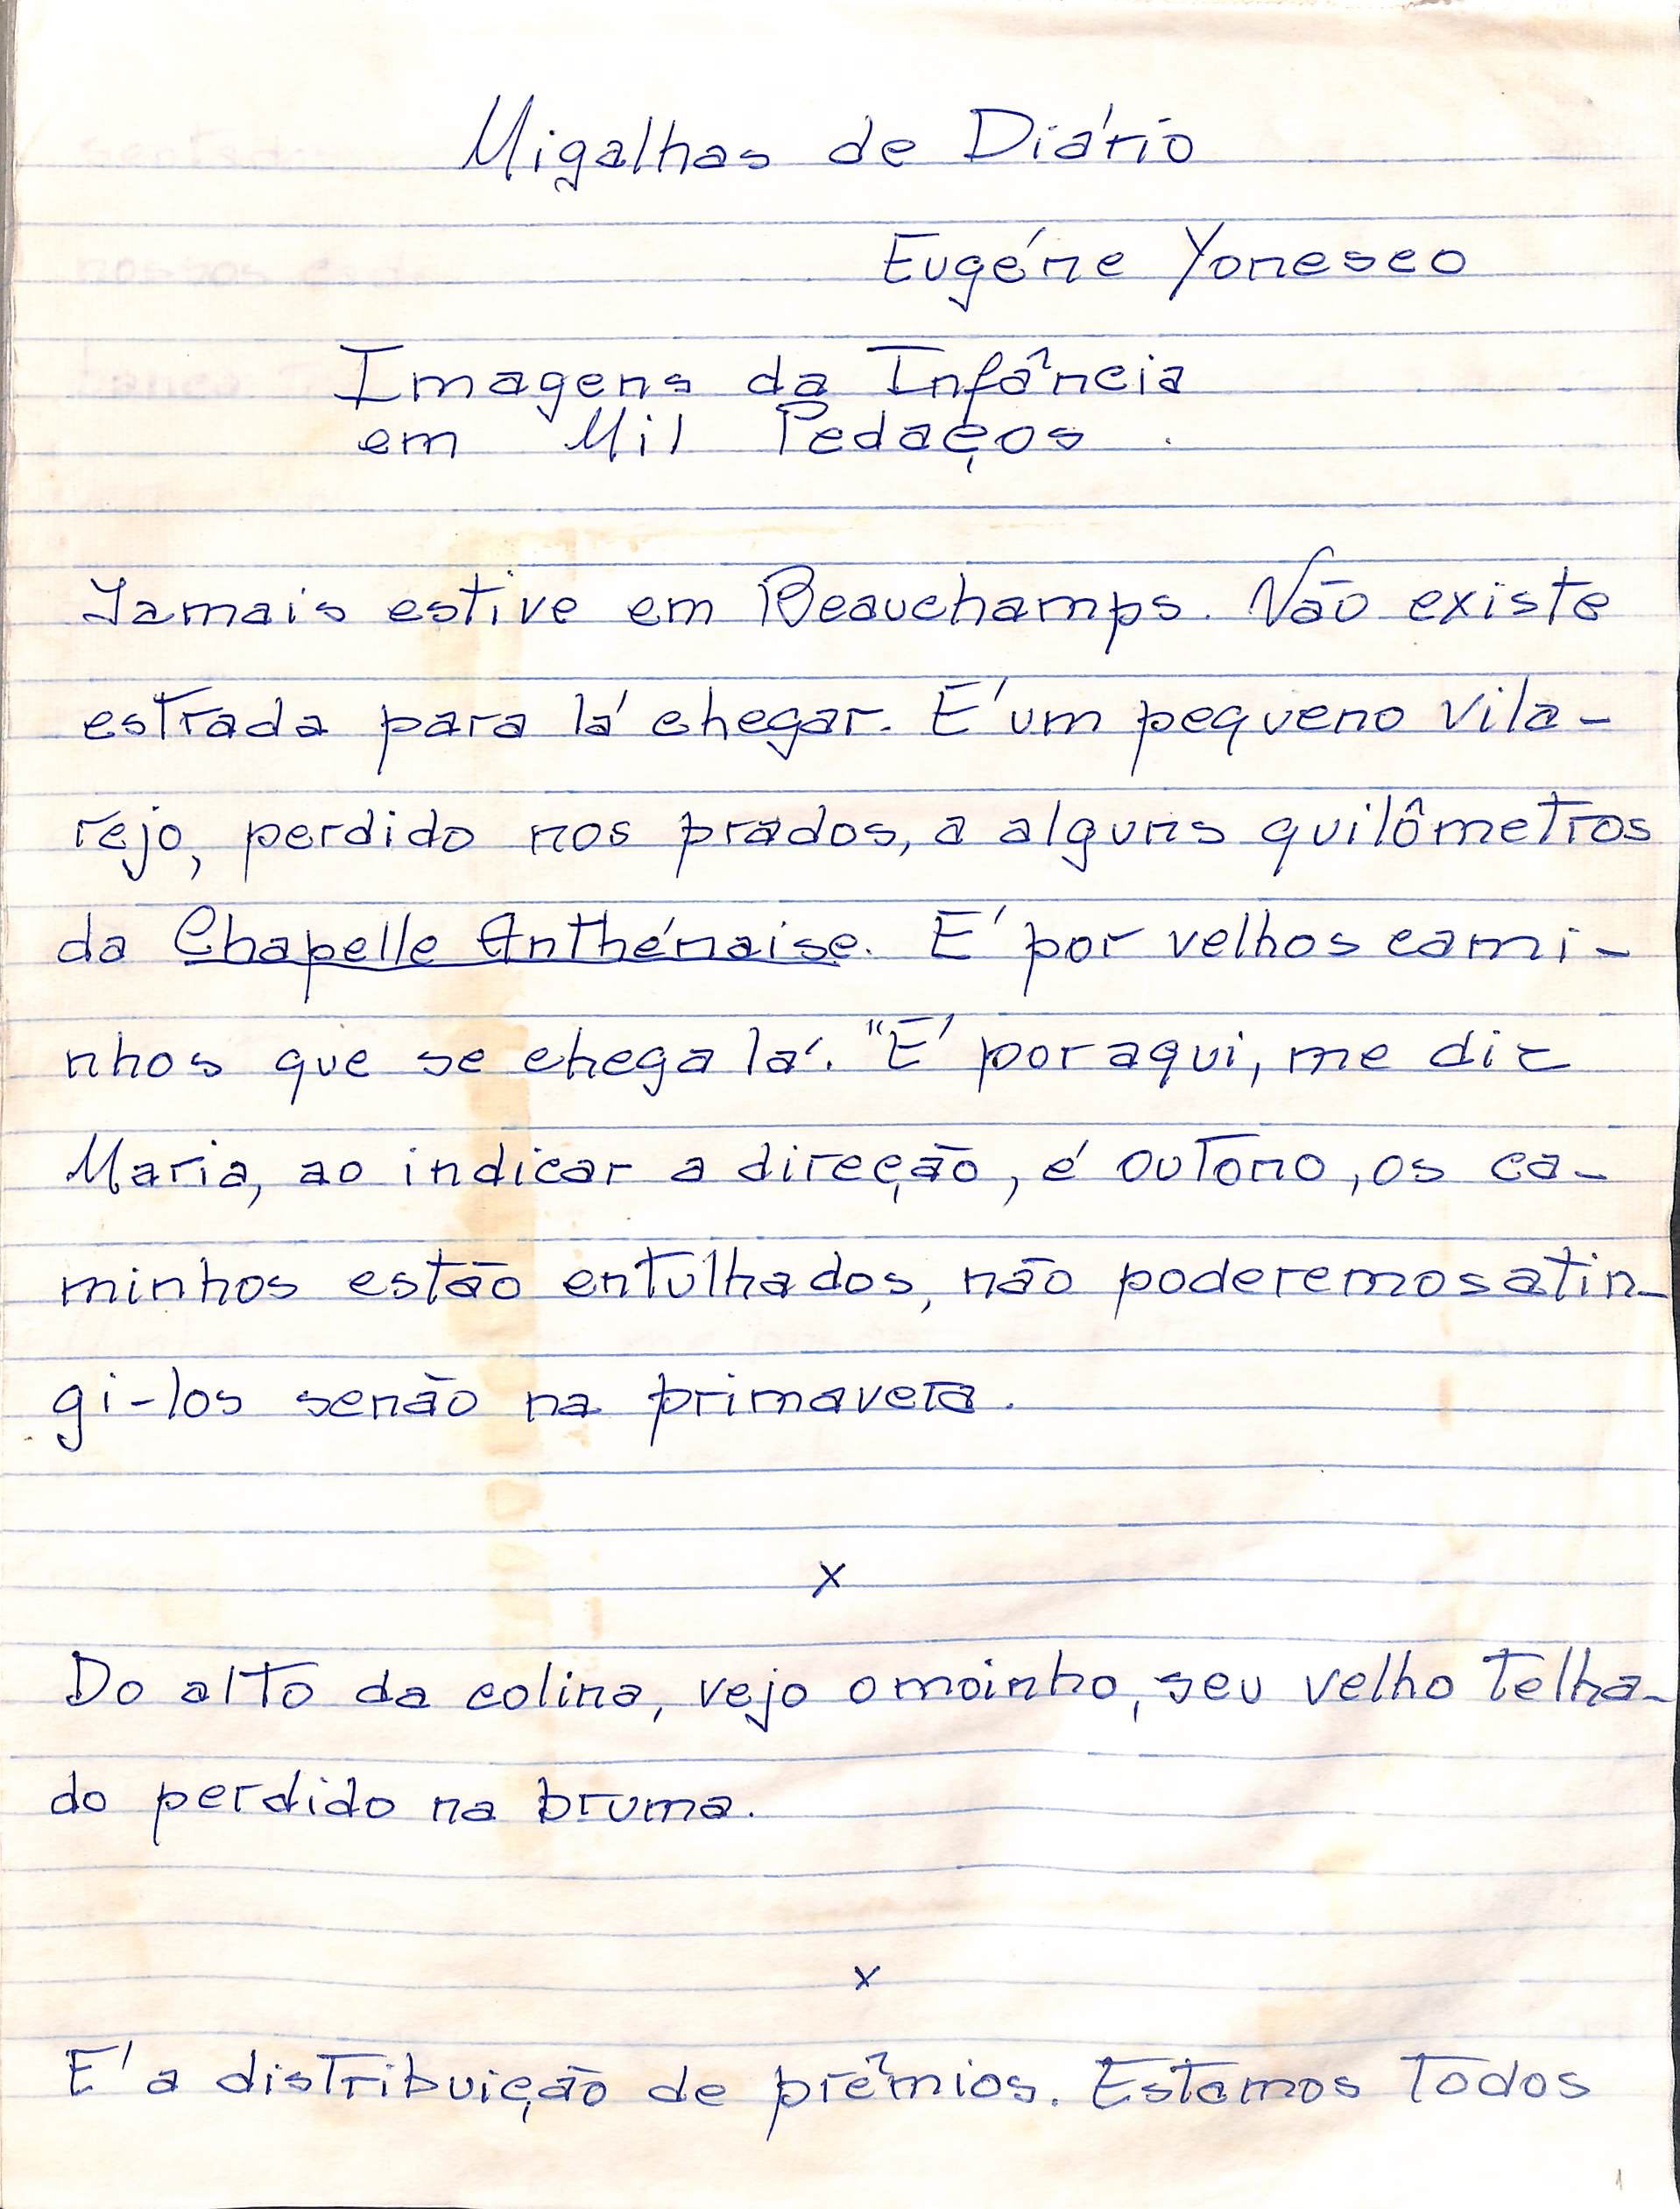 Migalhas de Diário
Eugéne Yonesco
Imagens da Infância
em Mil Pedaços.
Jamais estive em Beauchamps. Não existe
estrada para lá chegar. É um pequeno vila-
rejo, perdido nos prados, a alguns quilômetros
da Chapelle Anthénaise. É por velhos cami-
nhos que se chega lá. "É por aqui, me diz
Maria, ao indicar a direção, é outono, os ca-
minhos estão entulhados, não poderemos atin-
gi-los senão na primavera.
x
Do alto da colina, vejo o moinho, seu velho telha-
do perdido na bruma.
x
É a distribuição de prêmios. Estamos todos
1